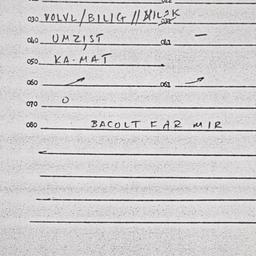 030 VOLVL/BILIG //
040 UMZIST 041 —
050 KA·MAT
060 061
070 0
080 BACOLT FAR MIR